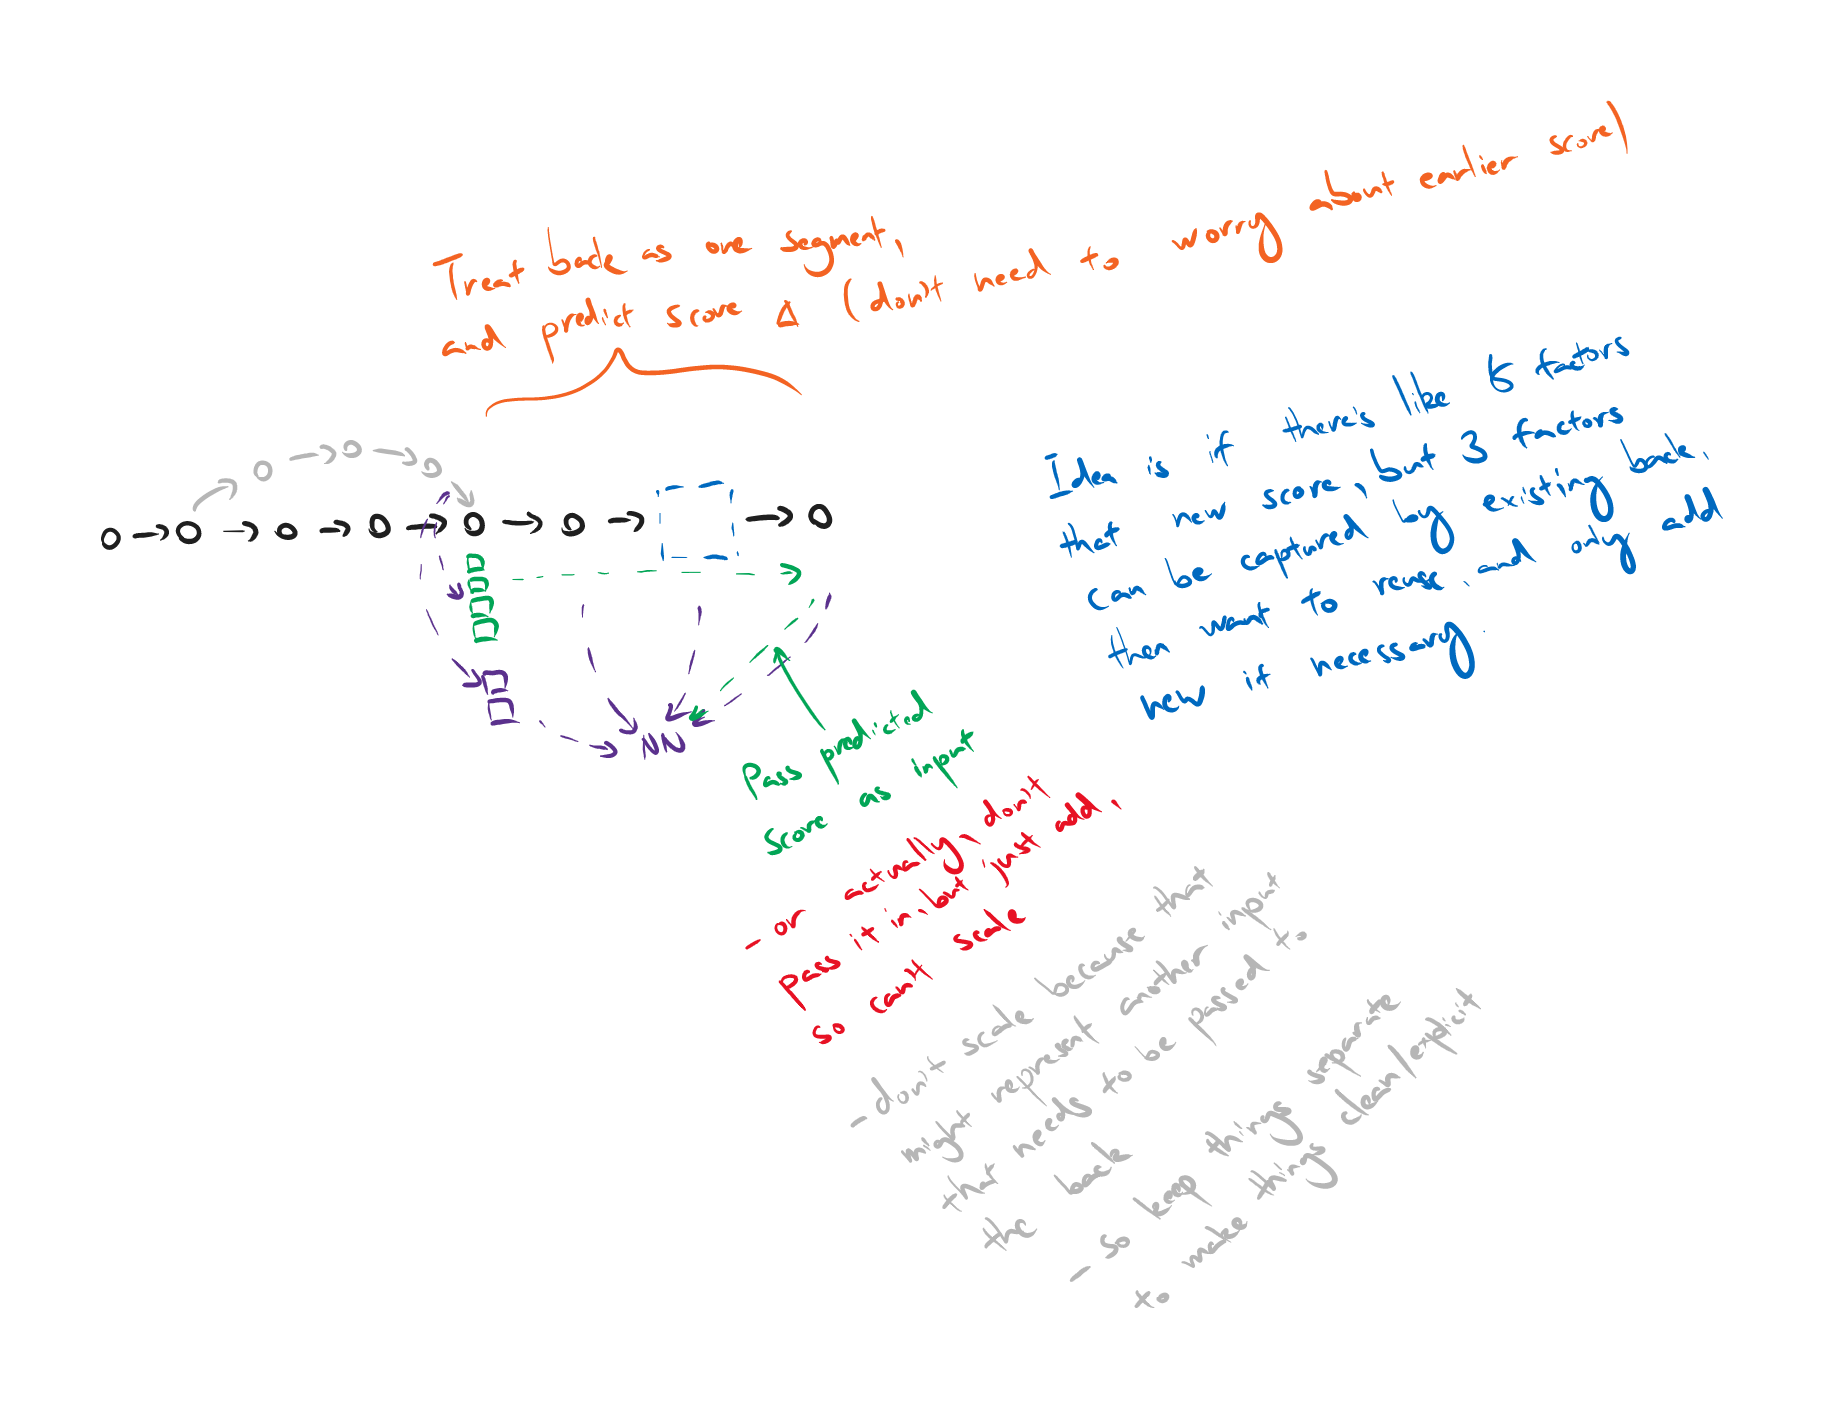 Treat back as one segment,
and predict score Δ (don't need to worry about earlier score)
Idea is if there's like 5 factors
that new score, but 3 factors
can be captured by existing back,
then want to reuse, and only add
new if necessary.
NN
Pass predicted
score as input
- or actually, don't
pass it in, but just add,
so can't scale
- don't scale because that
might represent another input
that needs to be passed to
the back
- so keep things separate
to make things clean/explicit